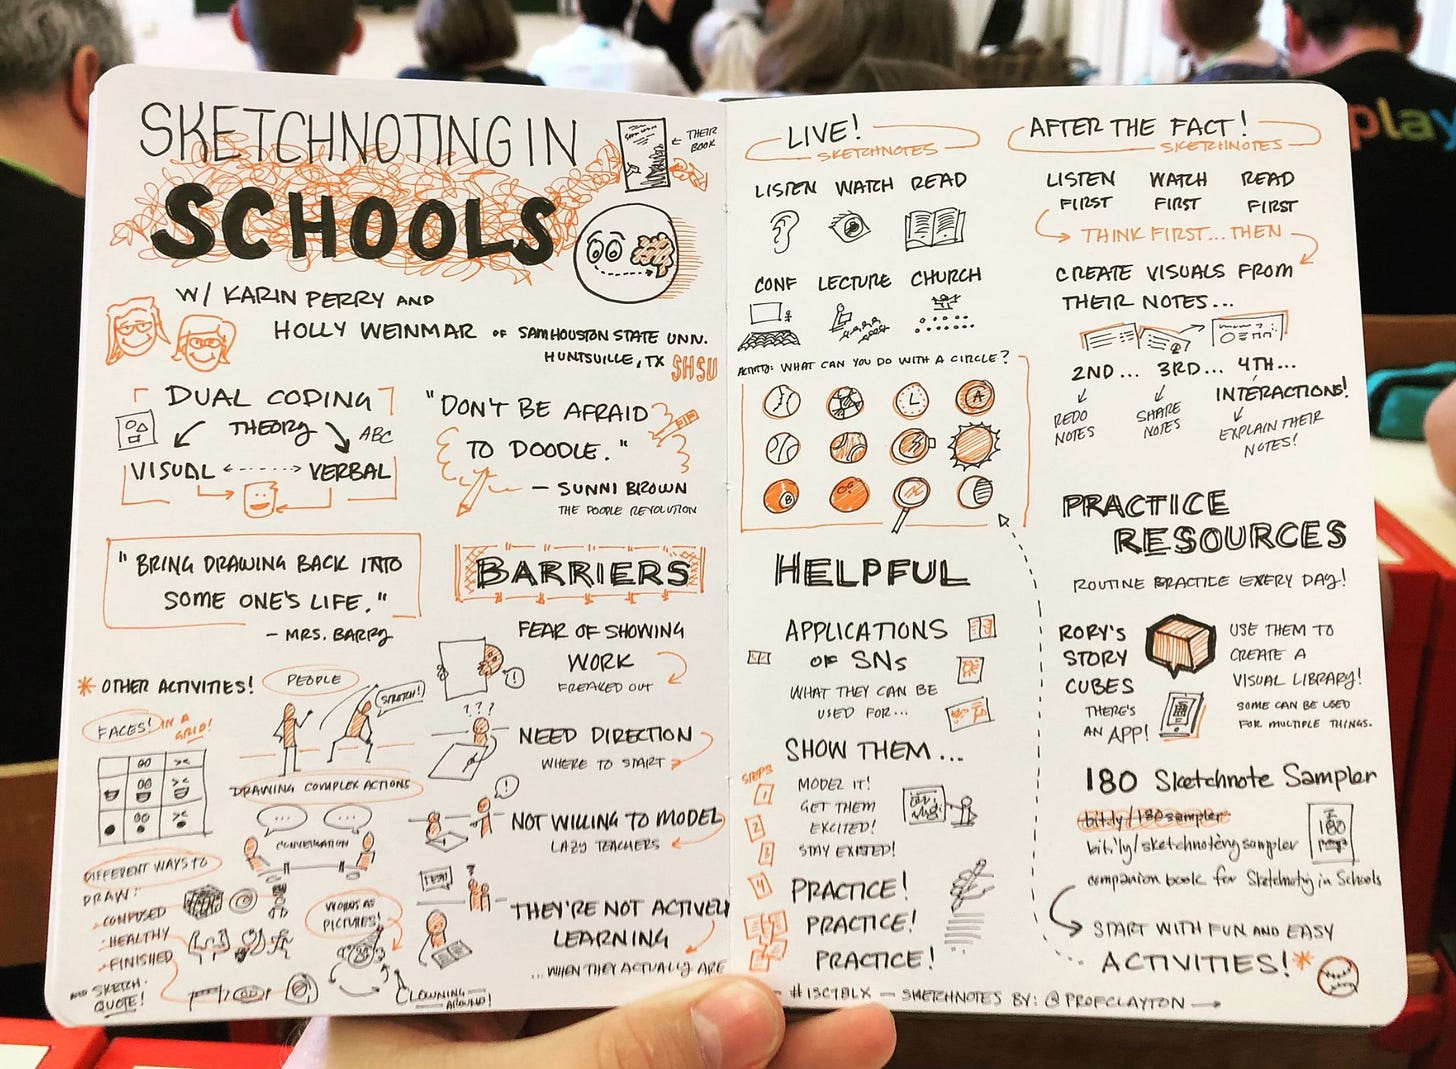 SKETCHNOTING IN
SCHOOLS
← THEIR
BOOK
W/ KARIN PERRY AND
HOLLY WEINMAR OF SAM HOUSTON STATE UNV.
HUNTSVILLE, TX SHSU
DUAL CODING
THEORY
ABC
VISUAL VERBAL
"DON'T BE AFRAID
TO DOODLE."
— SUNNI BROWN
THE DOODLE REVOLUTION
"BRING DRAWING BACK INTO
SOME ONE'S LIFE."
- MRS. BARRY
BARRIERS
FEAR OF SHOWING
WORK
FREAKED OUT
!
???
NEED DIRECTION
WHERE TO START
!
NOT WILLING TO MODEL
LAZY TEACHERS
?
THEY'RE NOT ACTIVELY
LEARNING
...WHEN THEY ACTUALLY ARE
* OTHER ACTIVITIES!
FACES! IN A
GRID!
PEOPLE
STRETCH!
DRAWING COMPLEX ACTIONS
CONVERSATION
DIFFERENT WAYS TO
DRAW:
- CONFUSED
- HEALTHY
- FINISHED
SKETCH
QUOTE!
WORDS AS
PICTURES!
CLOWNING
AROUND!
LIVE!
SKETCHNOTES
LISTEN WATCH READ
CONF LECTURE CHURCH
ACTIVITY: WHAT CAN YOU DO WITH A CIRCLE?
A
8
HELPFUL
APPLICATIONS
OF SNs
WHAT THEY CAN BE
USED FOR...
SHOW THEM...
STEPS
1 MODEL IT!
GET THEM
2 EXCITED!
3 STAY EXCITED!
4 PRACTICE!
PRACTICE!
PRACTICE!
AFTER THE FACT!
SKETCHNOTES
LISTEN WATCH READ
FIRST FIRST FIRST
THINK FIRST... THEN
CREATE VISUALS FROM
THEIR NOTES...
2ND... 3RD... 4TH...
REDO
NOTES
SHARE
NOTES
INTERACTIONS!
EXPLAIN THEIR
NOTES!
PRACTICE
RESOURCES
ROUTINE PRACTICE EVERY DAY!
RORY'S
STORY
CUBES
THERE'S
AN APP!
USE THEM TO
CREATE A
VISUAL LIBRARY!
SOME CAN BE USED
FOR MULTIPLE THINGS.
180 Sketchnote Sampler
bit.ly/180sampler
bit.ly/sketchnotingsampler
180
companion book for Sketchnoting in Schools
START WITH FUN AND EASY
ACTIVITIES! *
- #ISC18LX — SKETCHNOTES BY: @PROFCLAYTON →
play